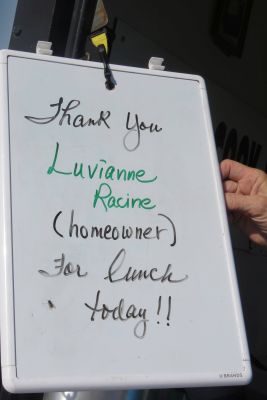 Thank You
Luvianne
Racine
(homeowner)
For lunch
today!!
U BRANDS